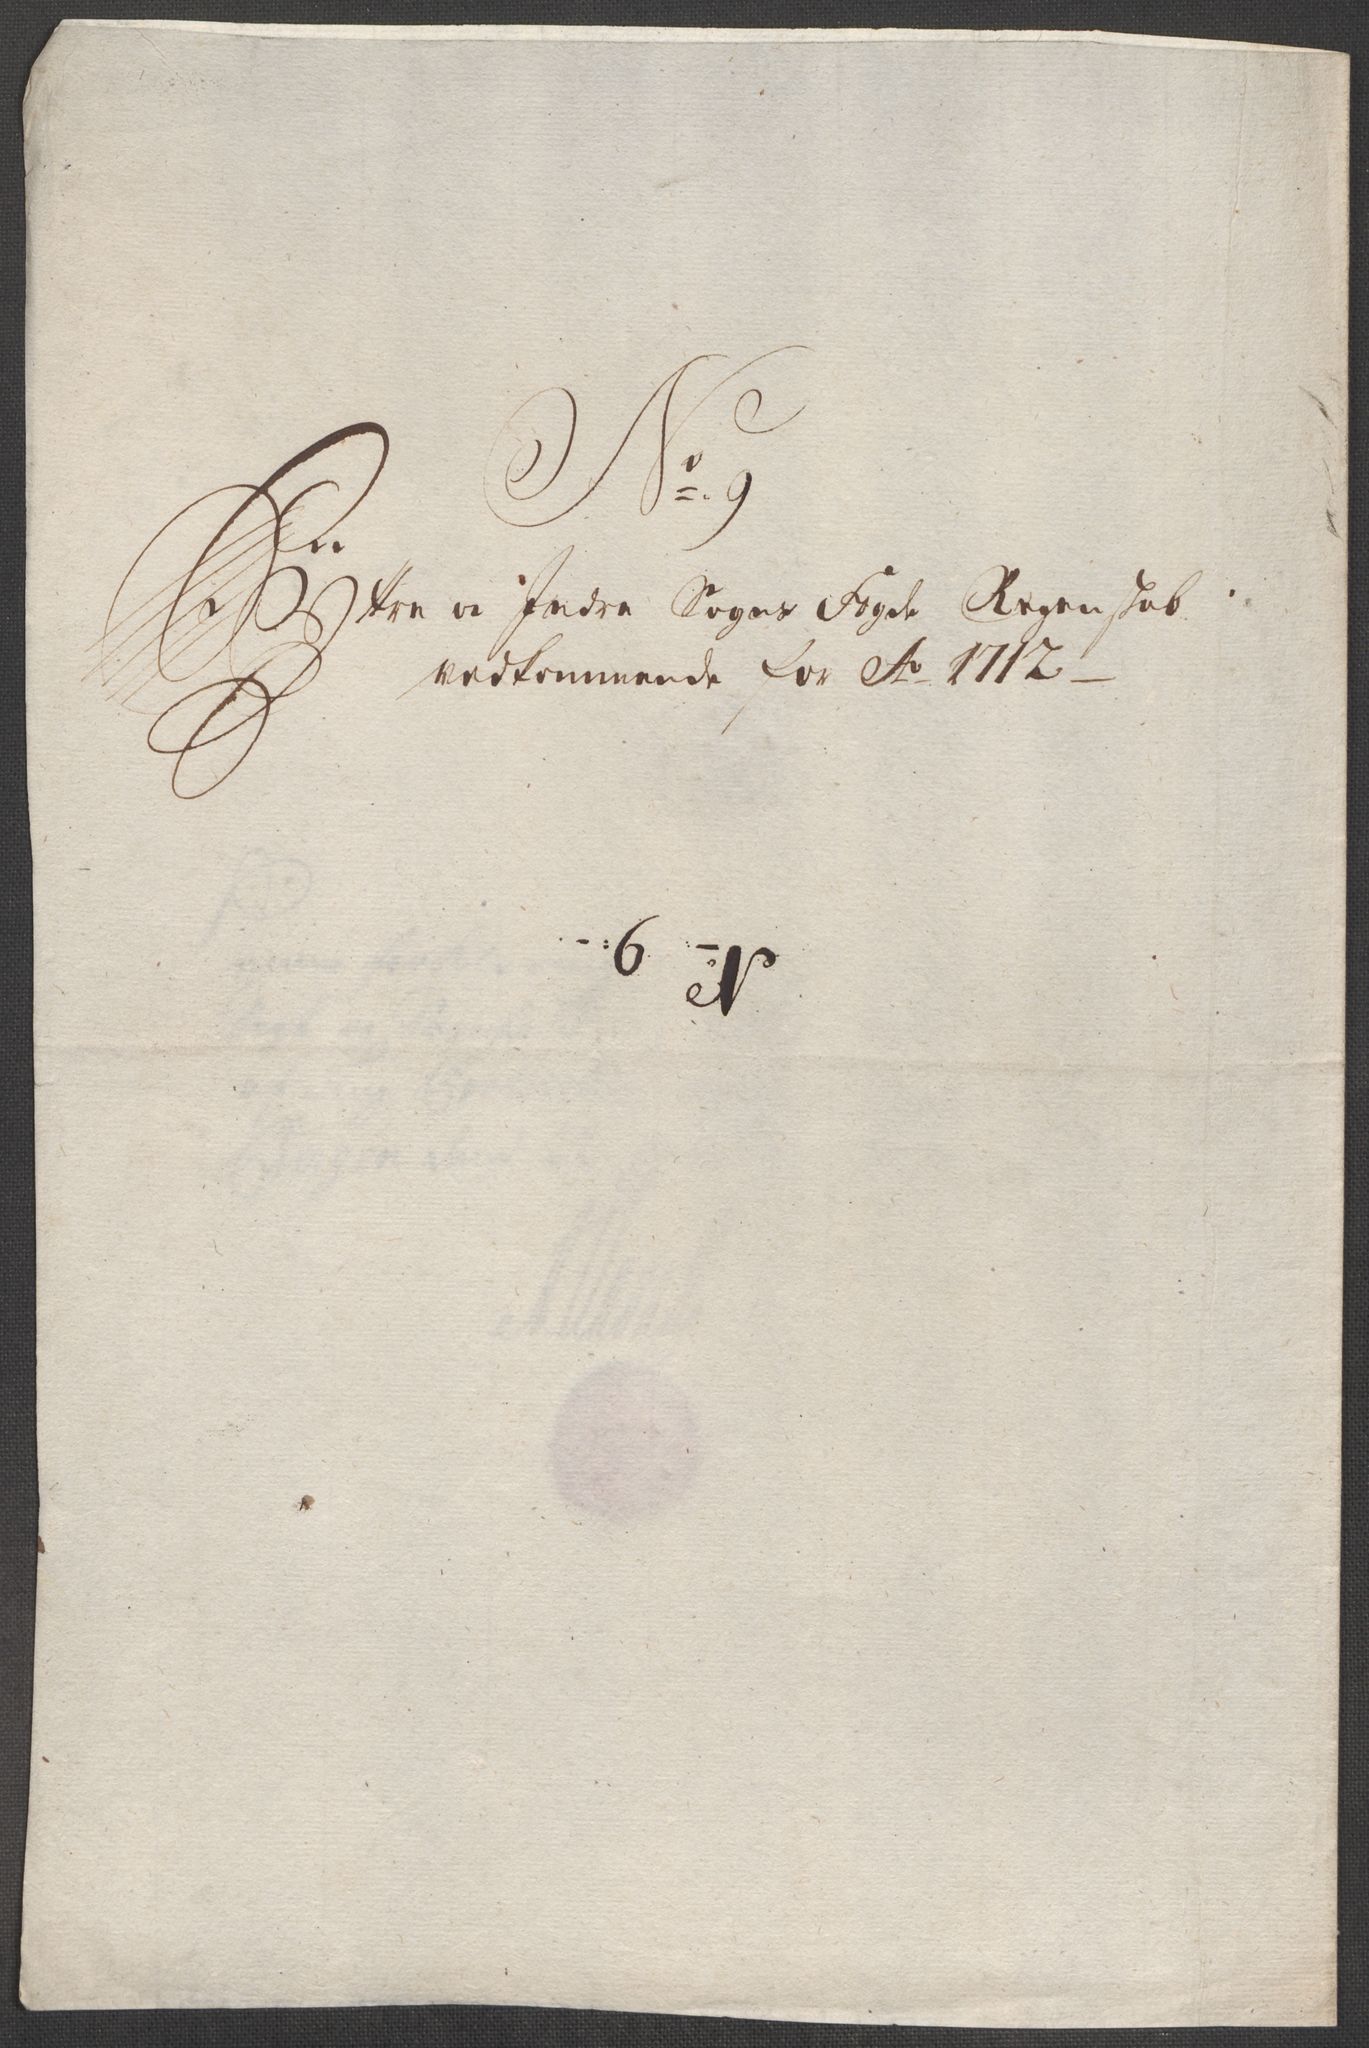 No. 9
Yttre oc Indre Sogns Fogde Regenskab
vedkommende for Ao 1712
No 9